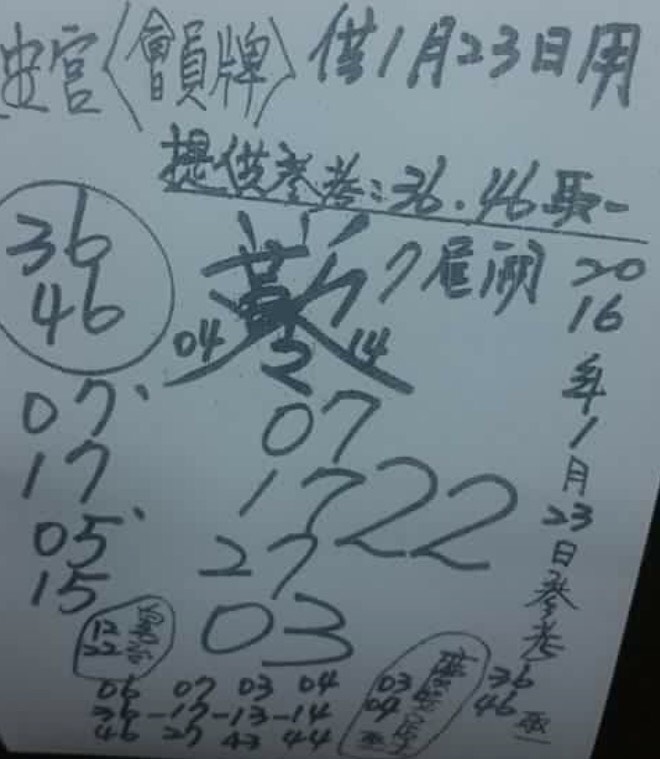 宮〈會員牌〉供1月23日用
提供參考:36.46取一
36
46
04 14
7尾
2016年1月23日參考
07、
17
05、
15
07
17
27
22
03
12
22
06 07 03 04
36-17-13-14
46 27 43 44
03
04
36
46